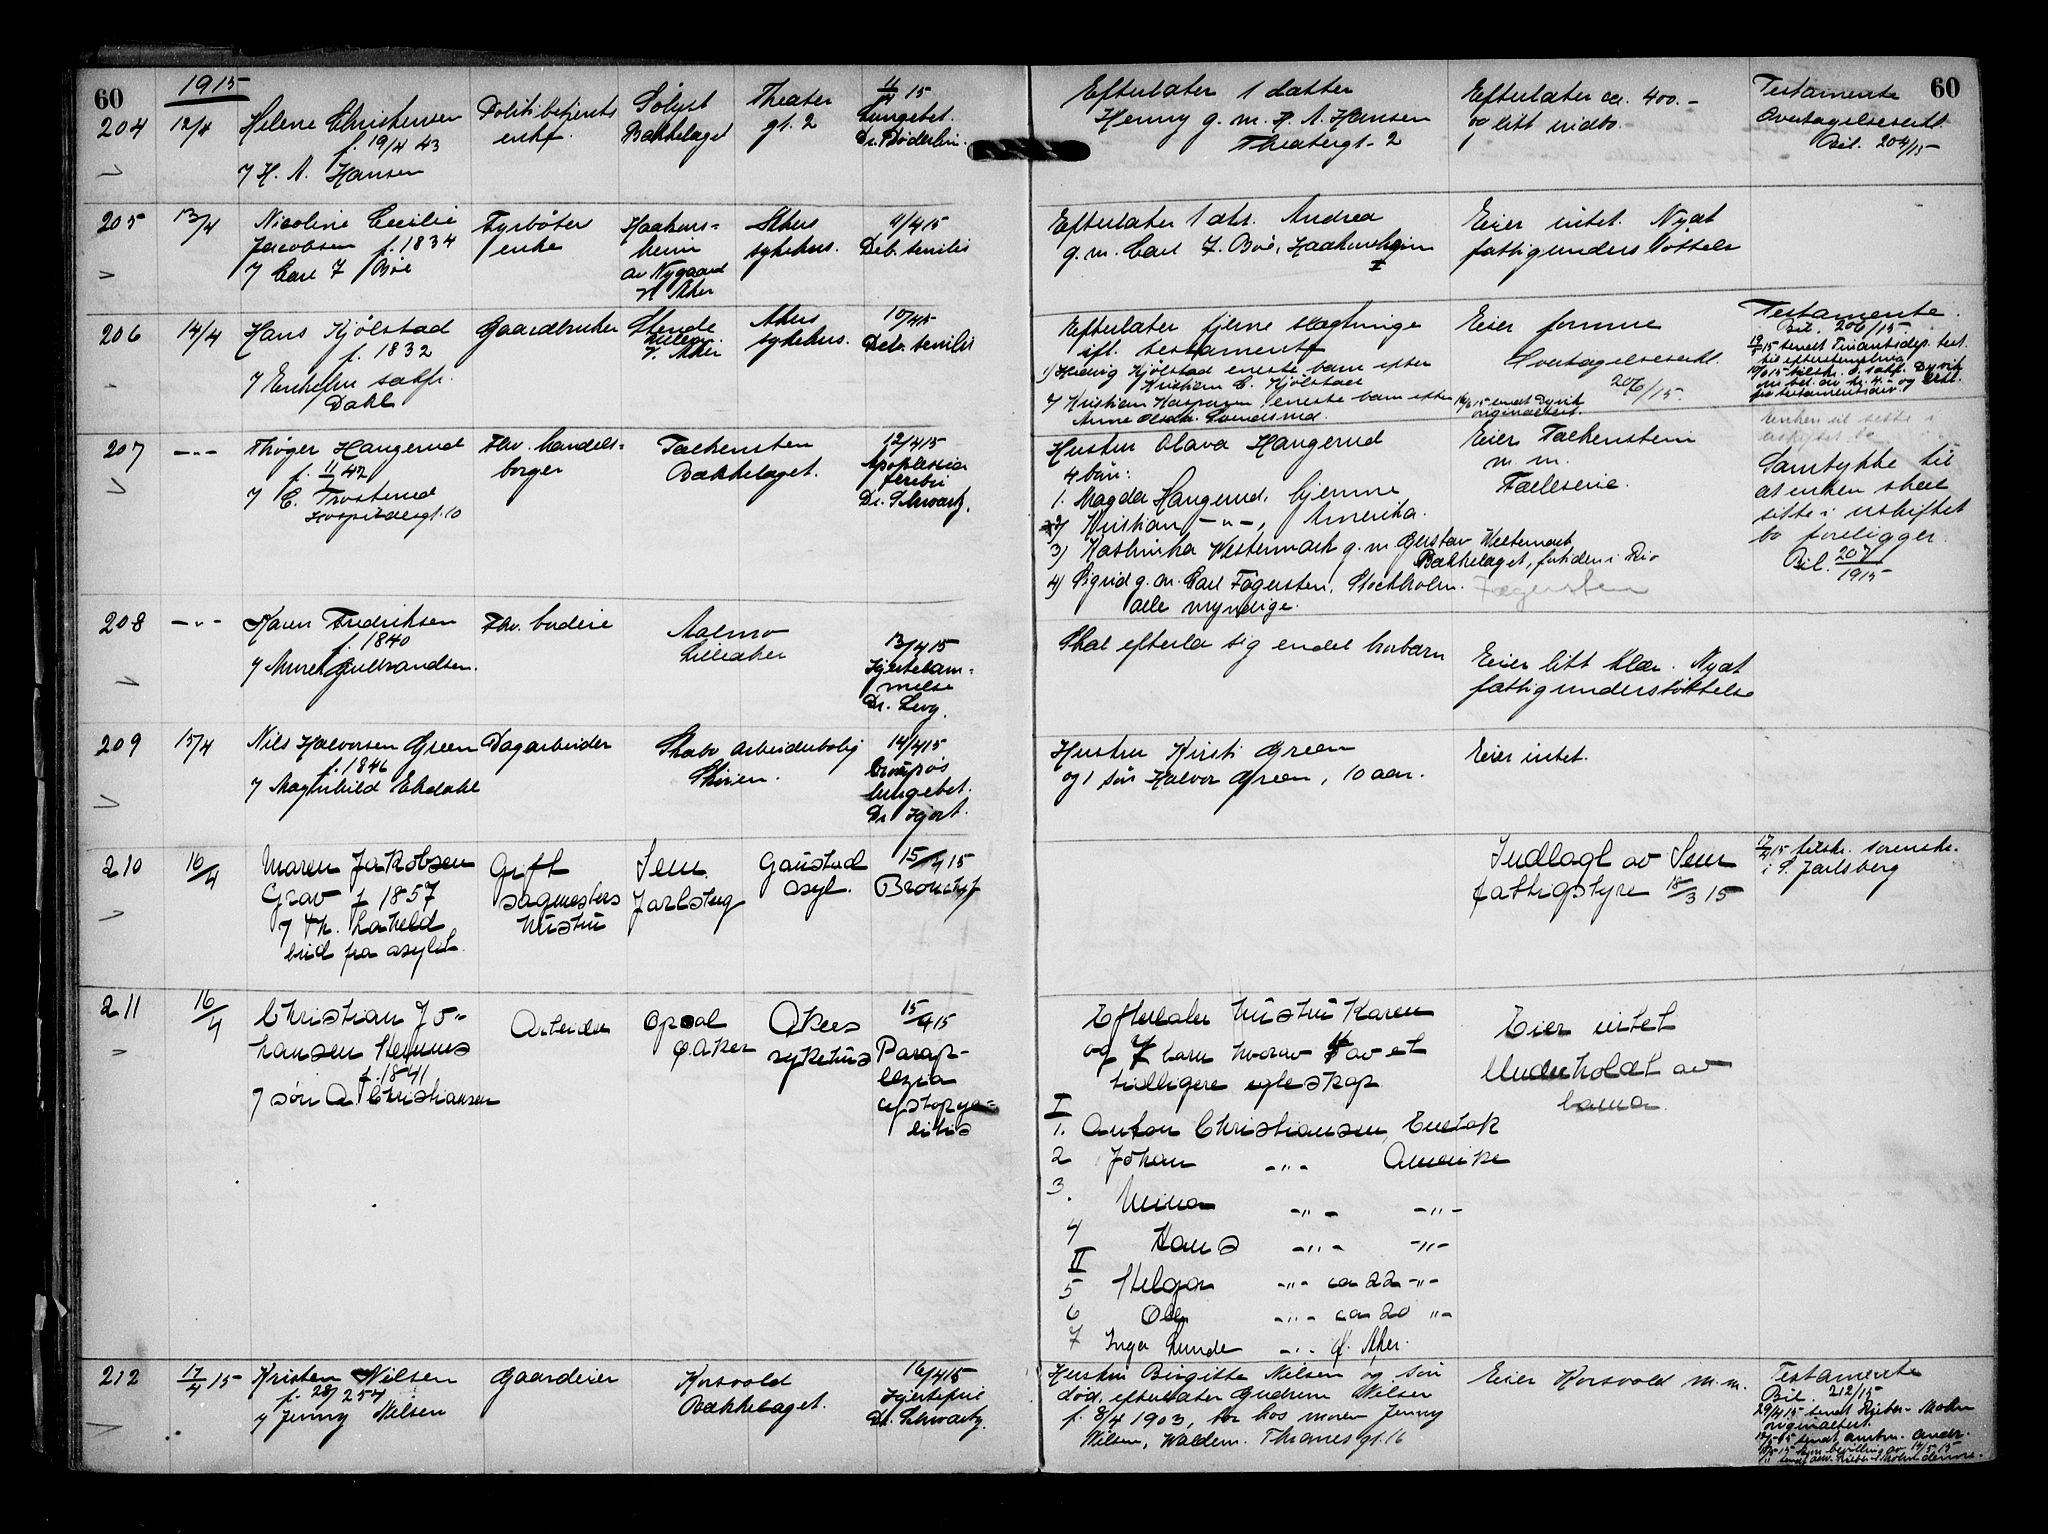 60
1915
204
12/4
Helene Christensen
f. 19/4 43
H. A. Hansen
Politibetjents
enke
Solyst
Bækkelaget
Theater
gt. 2
11/4 15
Lungebet.
Dr. Böderlin.
Efterlater 1 datter
Henny g. m. H. A. Hansen
Theatergt. 2
Efterlater ca. 400.-
og litt indbo.
Testamente
Overtagelseserkl.
Bil. 204/15
60
205
13/4
Nicoline Cecilie
Jacobsen f. 1834
Carl F. Böe
Fyrböter
enke
Haakons-
heim
av Nygaard
V. Aker
Akers
sykehus.
11/4 15
Deb. senilis
Efterlater 1 dtr. Andrea
g. m. Carl F. Böe, Haakonsheim
Eier intet. Nydt
fattigunderstöttelse
206
14/4
Hans Kjölstad
f. 1832
Enkefru
Dahl
Gaardbruker
V. Aker
Akers
sykehus.
10/4 15
Deb. senilis
Efterlater fjerne slægtninge
ifl. testamente
1) Hedvig Kjölstad eneste barn efter
Kristian C. Kjölstad
Kristian Kaspersen, eneste barn efter
Eier formue
Overtagelseserkl.
206/15.
originaltest.
Testamente.
Bil. 206/15.
207
-"-
Thöger Haugerud
f. 11/1 42
C. Trosterud
Hospitalsgt. 10
Fhv. handels-
borger
Falkensten
Bækkelaget.
12/4 15
Apoplexia
cerebri
Dr. Schwartz.
Hustru Olava Haugerud
4 barn:
1. Magda Haugerud, hjemme
2) Kristian -"-, Amerika.
3) Kathinka Westermark g. m. Gustav Westermark
Bækkelaget, fortiden i Rio
4) Sigrid g. m. Carl Fägersten, Stockholm.
alle myndige.
Fägersten
Eier Falkenstein
m. m.
Fælleseie.
Samtykke til
at enken skal
sitte i uskiftet
bo foreligger
Bil. 207/1915
208
-"-
Karen Fredriksen
f. 1840
Gulbrandsen.
Fhv. budeie
Lilleaker
13/4 15
Hjertelam-
melse
Dr. Levy.
Skal efterla sig endel bobarn
Eier litt klær. Nydt
fattigunderstöttelse
209
15/4
Nils Halvorsen Green
f. 1846
Magnhild Ekdahl
Dagarbeider
Skabo arbeiderbolig
Skøien.
14/4 15
Croupös
lungebet.
Dr. Hjort.
Hustru Kirsti Green
og 1 sön Halvor Green, 10 aar.
Eier intet.
210
16/4
Maren Jakobsen
Grav f 1857
bud fra asylet
Gift
sagmesters
hustru
Sem
Jarlsberg
Gaustad
asyl.
15/4 15
Bronchit
Indlagt av Sem
fattigstyre 18/3 15
17/4 15 tilskr. sorenskr.
i S. Jarlsberg
211
16/4
Christian Jo-
hansen Hemnes
f. 1841
sön A. Christiansen
Arbeider
Opsal
Ø. Aker
Akers
sykehus
15/4 15
Parap-
legia
cystopye-
litis
Efterlater hustru Karen
og 7 barn hvorav 4 av et
tidligere egteskap
I
1. Anton Christiansen Enebak
2 Johan -"- Amerika
3. Mina -"- -"-
4 Hans -"- -"-
II
5 Helga -"- ca 22 -"-
6 Ole -"- ca 20 "-
7 Inga Lunde -"- Ø. Aker.
Eier intet
Underholdt av
barna.
212
17/4 15
Kristen Nilsen
f. 28/2 54
Jenny Nilsen
Gaardeier
Korsvold
Bækkelaget.
16/4 15
Hjertefeil
Dr. Schwartz.
Hustru Birgitte Nilsen og sön
död, efterlater Gudrun Nilsen
f. 8/4 1903, bor hos moren Jenny
Nilsen, Waldem. Thranes gt. 16
Eier Korsvold m. m.
Testamente
Bil. 212/15
originaltest.